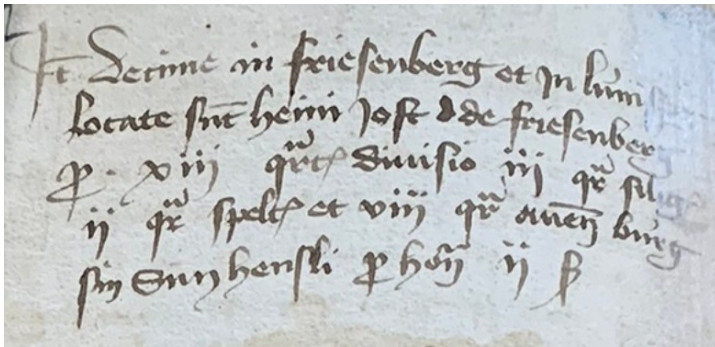 It decime in friesenberg et in lum
locate sūt heini Jost de friesenberg
p xiii qrt diuisio iii qr sil
ii qr spelt et viii qr auen burg
sin Sun hensli p hon ii ß